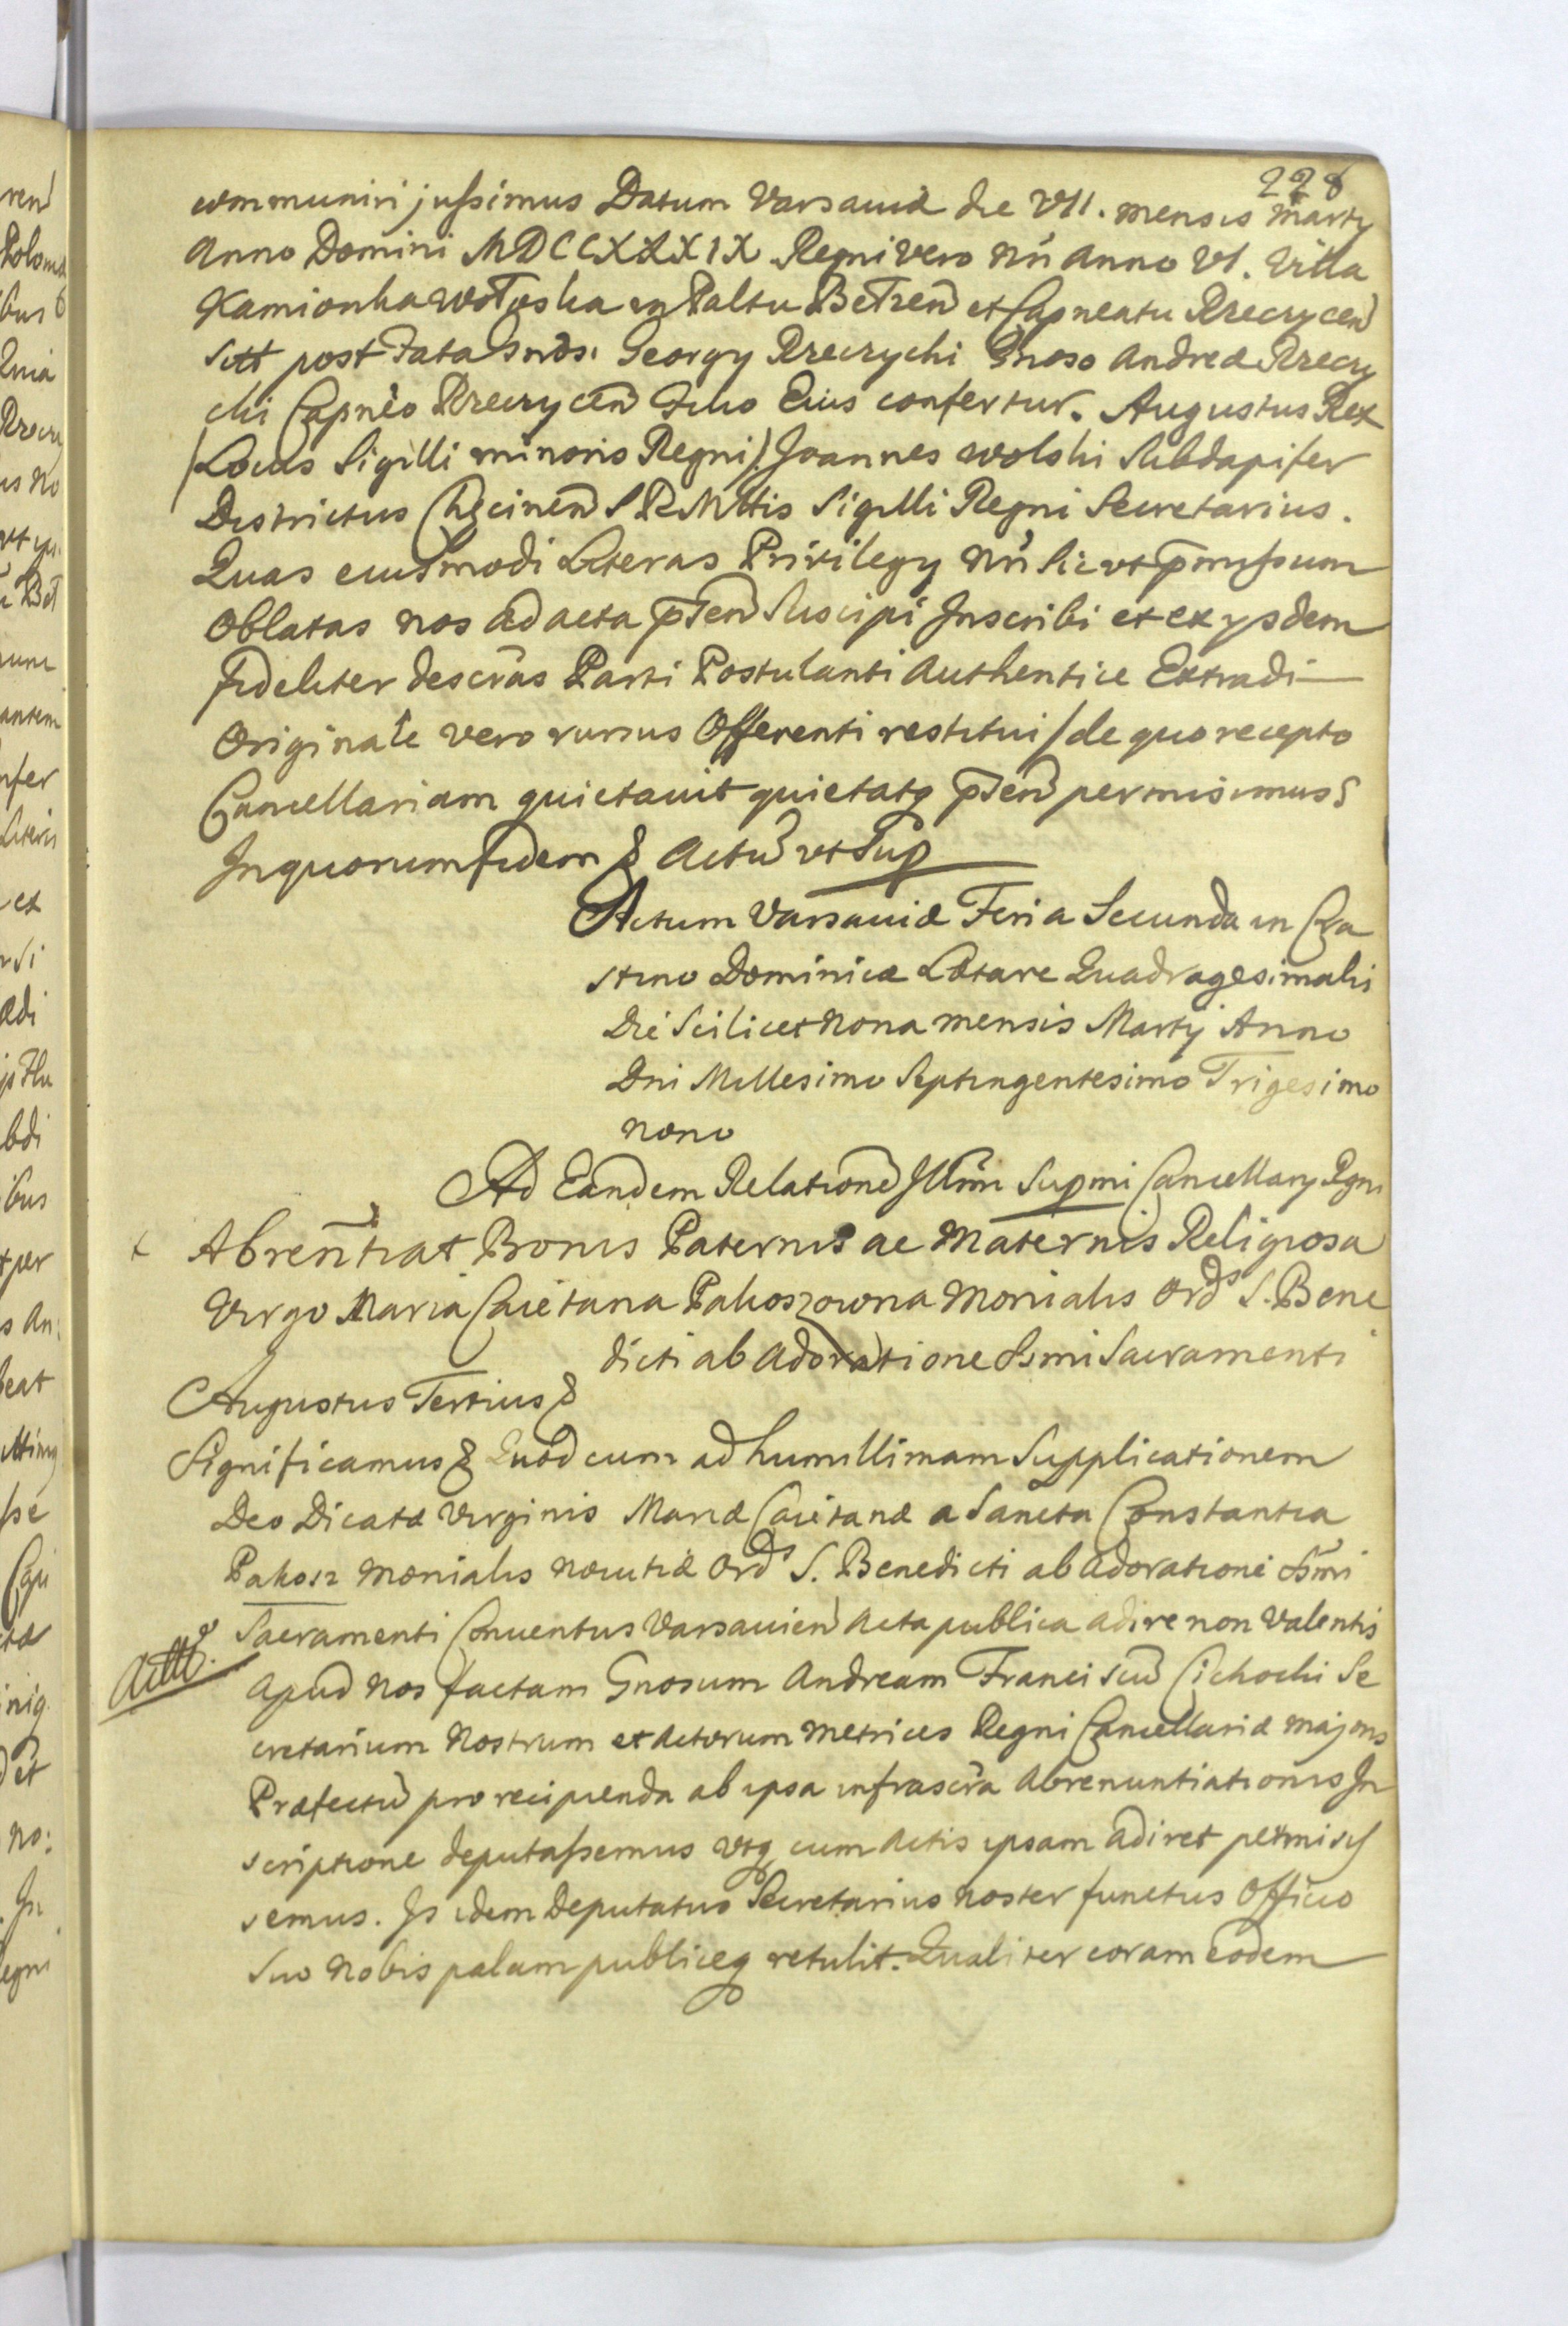 228
communiri jussimus Datum Varsaviæ die VII. mensis Marty
Anno Domini MDCCXXXIX Regni vero Nri Anno VI. Villa
Kamionka Wołoska in Paltu Bełzen et Capneatu Rzeczycen
sitt post fata Gnosi Georgy Rzeczychi Gnoso Andreæ Rzeczy
chi Capneo Rzeczycen Filio Eius confertur. Augustus Rex
(Locus Sigilli minoris Regni) Joannes Wolski Subdapifer
Districtus Checinen S R Mttis Sigilli Regni Secretarius.
Quas eiusmodi Literas Privilegy Nri sic ut pmissum
Oblatas nos ad acta pnten suscipi Inscribi et ex ysdem
fideliter descras Parti Postulanti Authentice Extradi
Originale vero rursus Offerenti restitui /de quo recepto
Cancellariam quietavit quietatq pnten permisimus
In quorum fidem & Actu ut Sup
Actum Varsaviæ Feria Secunda in Cra
stino Dominicæ Lætare Quadragesimalis
Die Scilicet Nona mensis Martij Anno
Dni Millesimo Septingentesimo Trigesimo
nono
Ad Eandem Relatione Illmi Supmi Cancellary Rgni
Abrentiat Bonis Paternis ac Maternis Religiosa
Virgo Maria Caietana Pakoszowna Monialis Ords S. Bene
dicti ab Adoratione Ssmi Sacramenti
Augustus Tertius &
Significamus & Quod cum ad humillimam Supplicationem
Deo Dicatæ Virginis Mariæ Caietanæ a Sancta Constantia
Pakosz Monialis Novitiæ Ords S. Benedicti ab Adoratione Ssmi
Sacramenti Conventus Varsavien Acta publica adire non Valentis
apud Nos factam Gnosum Andream Franciscu Cichocki Se
cretarium Nostrum et Actorum Metrices Regni Cancellariæ majoris
Præfectu pro recipienda ab ipsa infrascra Abrenuntiationis In
scriptione deputassemus utq cum Actis ipsam adiret permisis
semus. Is idem Deputatus Secretarius Noster functus Officio
Suo Nobis palam publiceq retulit. Qualiter coram Eodem